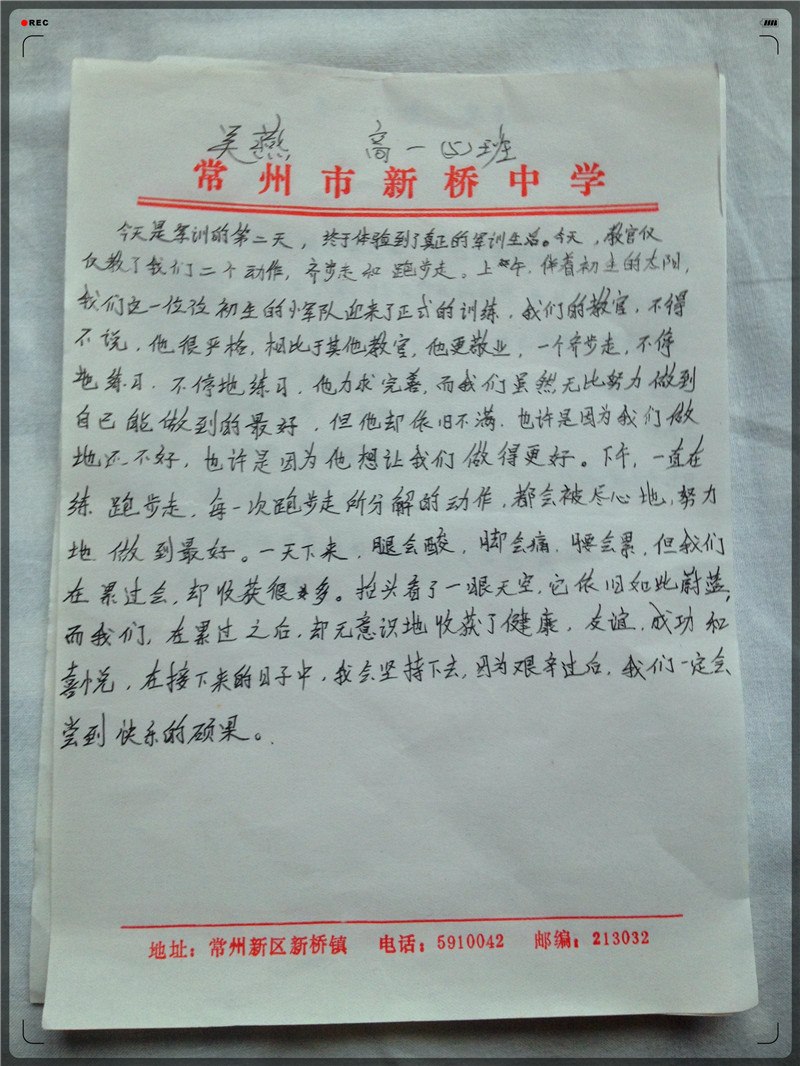 REC
吴燕 高一(5)班
常州市新桥中学
今天是军训的第二天，终于体验到了真正的军训生活。今天，教官仅
仅教了我们二个动作，齐步走和跑步走。上午，伴着初生的太阳，
我们这一位位初生的小军队迎来了正式的训练，我们的教官，不得
不说，他很严格，相比于其他教官，他更敬业，一个齐步走，不停
地练习，不停地练习，他力求完善，而我们虽然无比努力做到
自己能做到的最好，但他却依旧不满，也许是因为我们做
地还不好，也许是因为他想让我们做得更好。下午，一直在
练跑步走，每一次跑步走所分解的动作，都会被尽心地，努力
地做到最好。一天下来，腿会酸，脚会痛，腰会累，但我们
在累过会，却收获很多。抬头看了一眼天空，它依旧如此蔚蓝，
而我们，在累过之后，却无意识地收获了健康，友谊，成功和
喜悦，在接下来的日子中，我会坚持下去，因为艰辛过后，我们一定会
尝到快乐的硕果。
地址：常州新区新桥镇 电话：5910042 邮编：213032